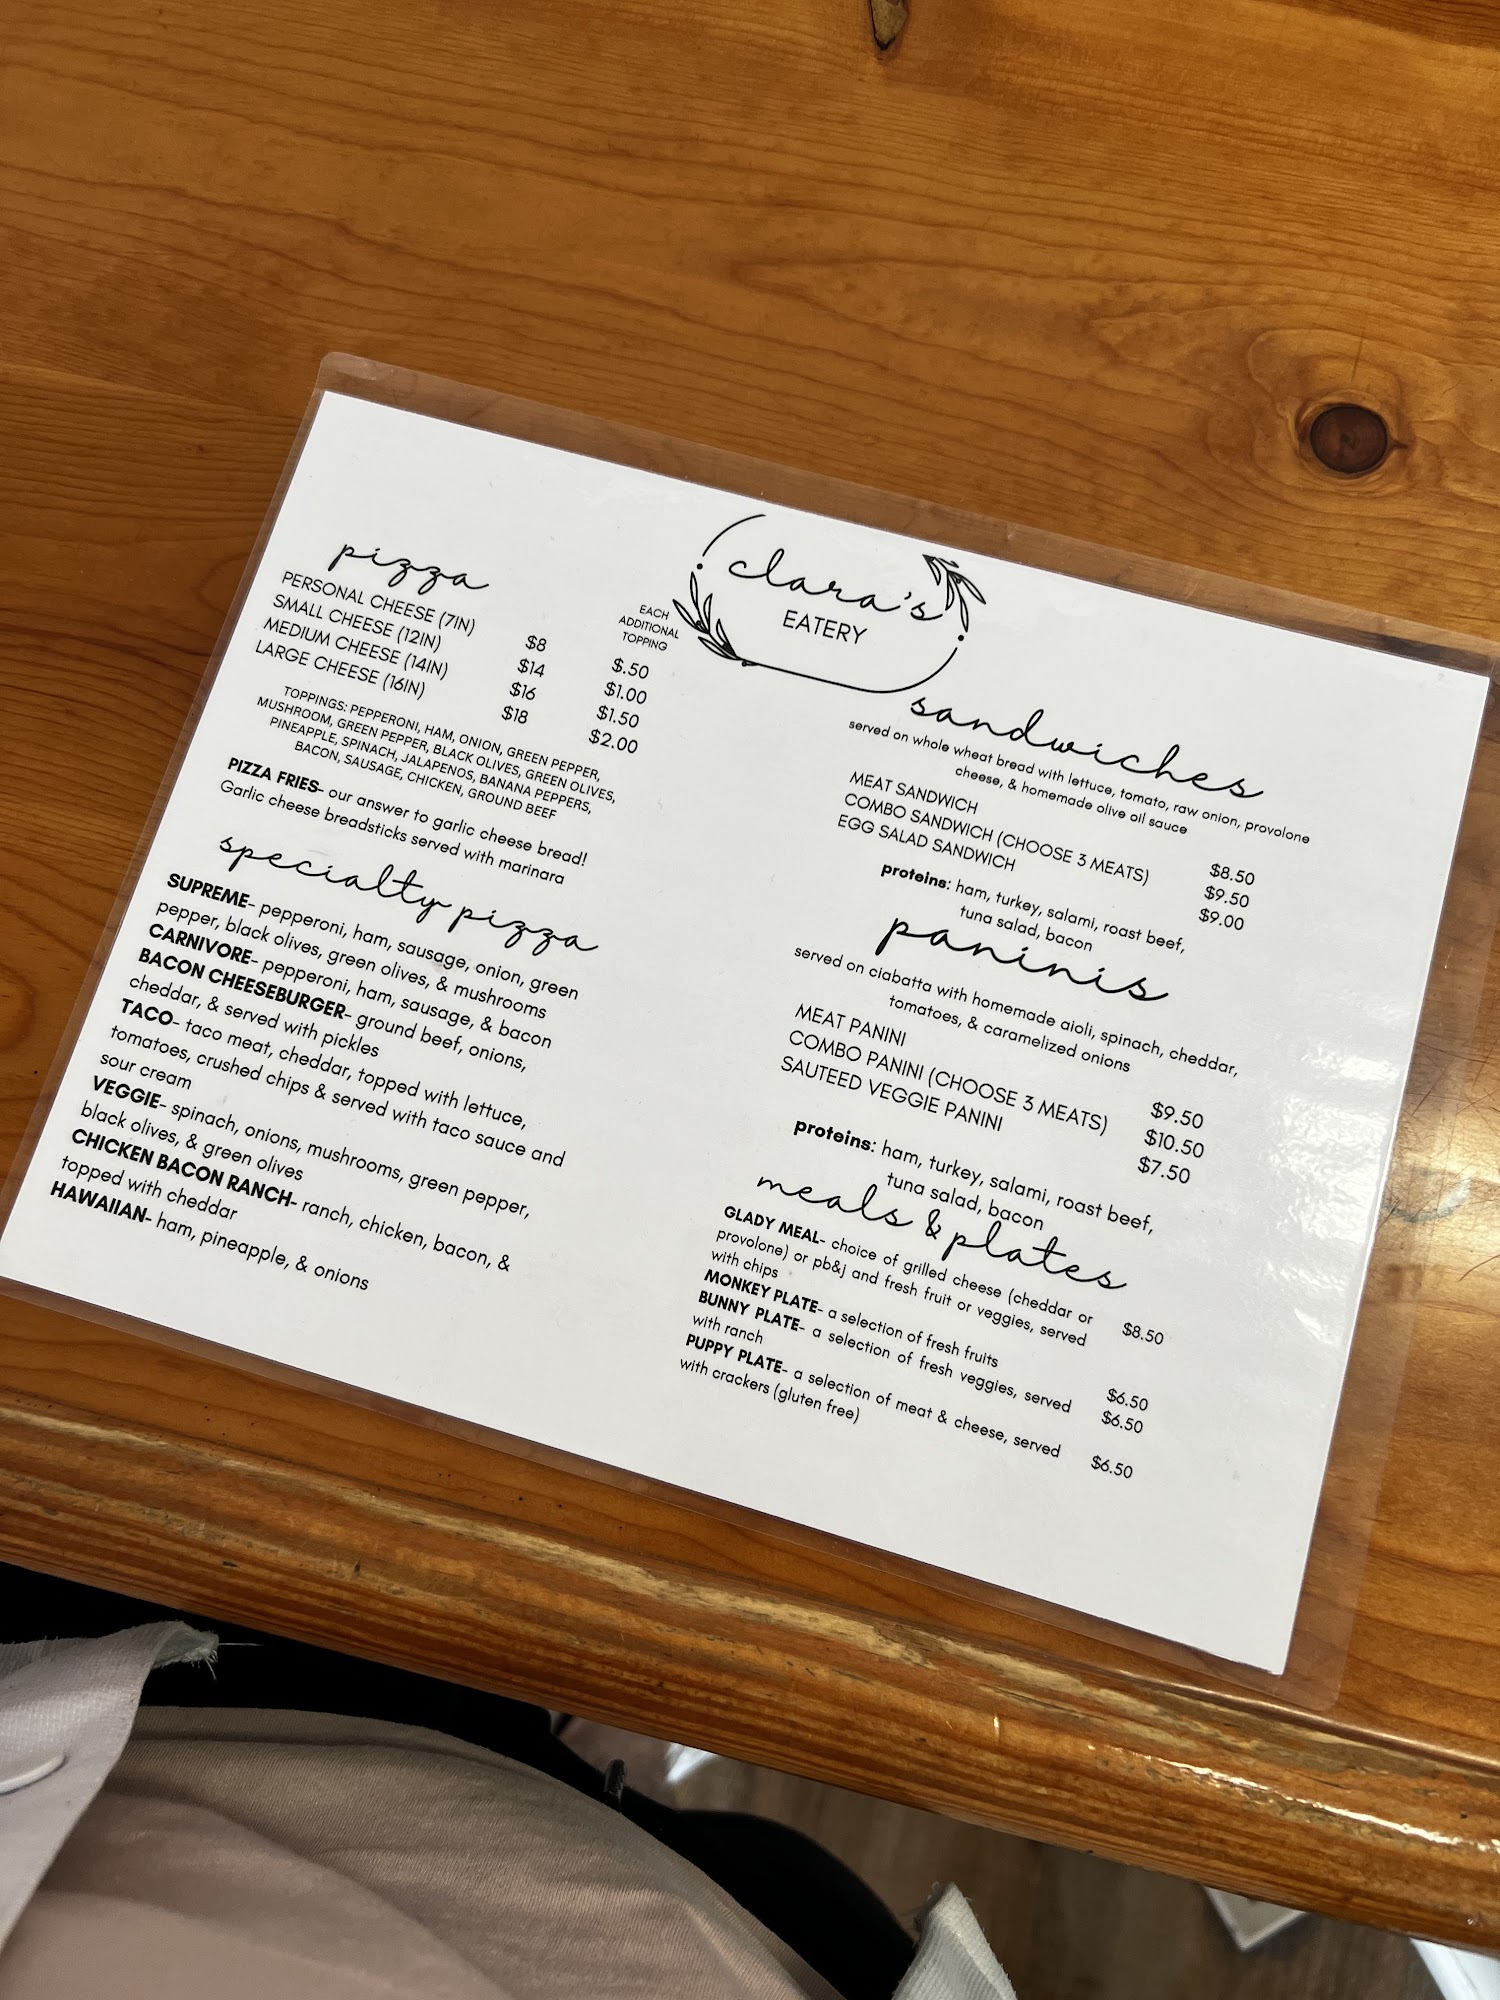 clara's
EATERY
pizza
EACH
ADDITIONAL
TOPPING
PERSONAL CHEESE (7IN) $8 $.50
SMALL CHEESE (12IN) $14 $1.00
MEDIUM CHEESE (14IN) $16 $1.50
LARGE CHEESE (16IN) $18 $2.00
TOPPINGS: PEPPERONI, HAM, ONION, GREEN PEPPER,
MUSHROOM, GREEN PEPPER, BLACK OLIVES, GREEN OLIVES,
PINEAPPLE, SPINACH, JALAPENOS, BANANA PEPPERS,
BACON, SAUSAGE, CHICKEN, GROUND BEEF
PIZZA FRIES- our answer to garlic cheese bread!
Garlic cheese breadsticks served with marinara
specialty pizza
SUPREME- pepperoni, ham, sausage, onion, green
pepper, black olives, green olives, & mushrooms
CARNIVORE- pepperoni, ham, sausage, & bacon
BACON CHEESEBURGER- ground beef, onions,
cheddar, & served with pickles
TACO- taco meat, cheddar, topped with lettuce,
tomatoes, crushed chips & served with taco sauce and
sour cream
VEGGIE- spinach, onions, mushrooms, green pepper,
black olives, & green olives
CHICKEN BACON RANCH- ranch, chicken, bacon, &
topped with cheddar
HAWAIIAN- ham, pineapple, & onions
sandwiches
served on whole wheat bread with lettuce, tomato, raw onion, provolone
cheese, & homemade olive oil sauce
MEAT SANDWICH $8.50
COMBO SANDWICH (CHOOSE 3 MEATS) $9.50
EGG SALAD SANDWICH $9.00
proteins: ham, turkey, salami, roast beef,
tuna salad, bacon
paninis
served on ciabatta with homemade aioli, spinach, cheddar,
tomatoes, & caramelized onions
MEAT PANINI $9.50
COMBO PANINI (CHOOSE 3 MEATS) $10.50
SAUTEED VEGGIE PANINI $7.50
proteins: ham, turkey, salami, roast beef,
tuna salad, bacon
meals & plates
GLADY MEAL- choice of grilled cheese (cheddar or
provolone) or pb&j and fresh fruit or veggies, served $8.50
with chips
MONKEY PLATE- a selection of fresh fruits $6.50
BUNNY PLATE- a selection of fresh veggies, served $6.50
with ranch
PUPPY PLATE- a selection of meat & cheese, served $6.50
with crackers (gluten free)